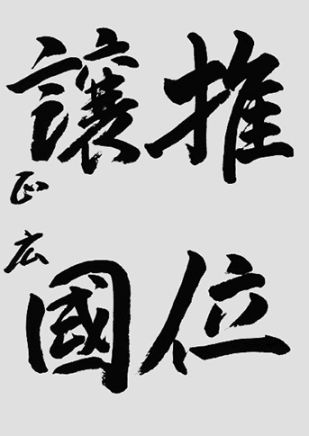 推位
讓國
正広